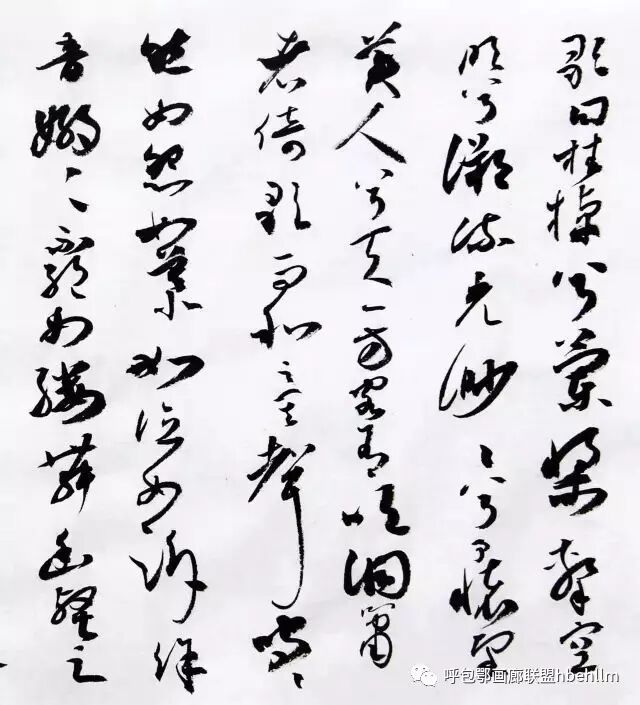 歌曰桂棹兮蘭槳擊空
明兮溯流光渺々兮予懷望
美人兮天一方客有吹洞簫
者倚歌而和之其聲嗚々
然如怨如慕如泣如訴餘
音嫋々不絕如縷舞幽壑之
呼包鄂画廊联盟hbehllm